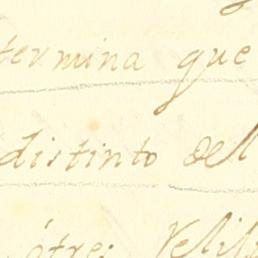 termina que
distinto del
otre: